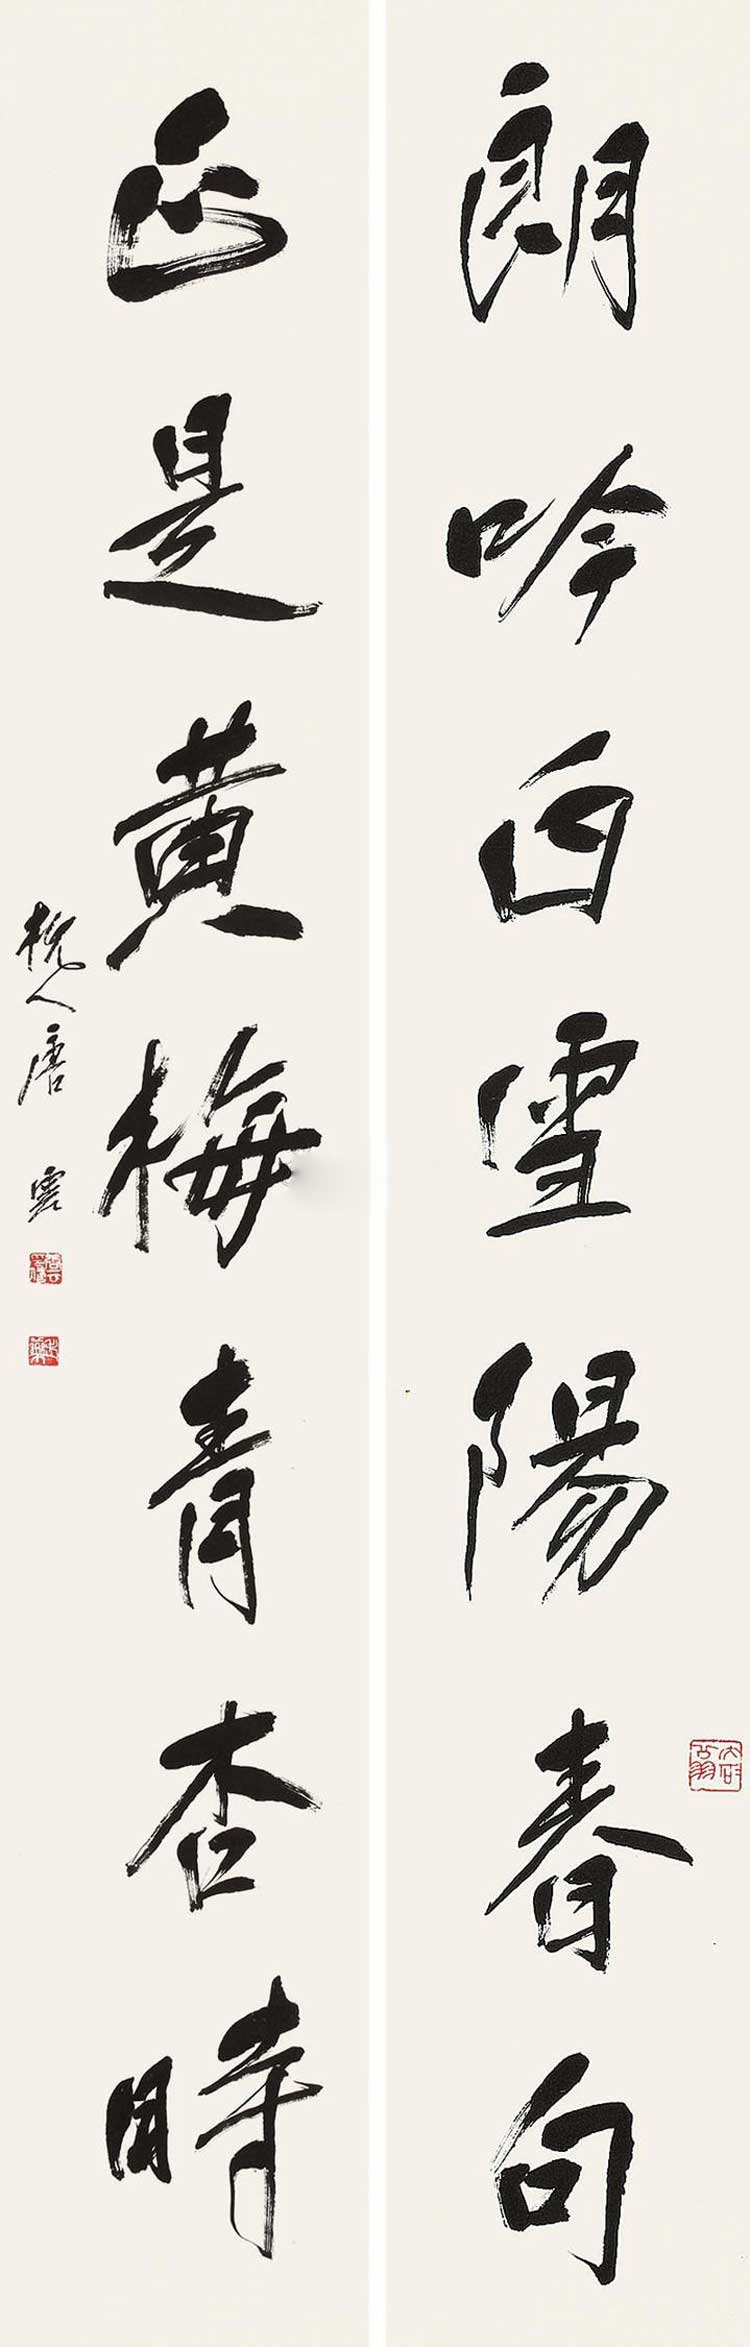 朗吟白雪陽春句
正是黄梅青杏時
杭人唐雲